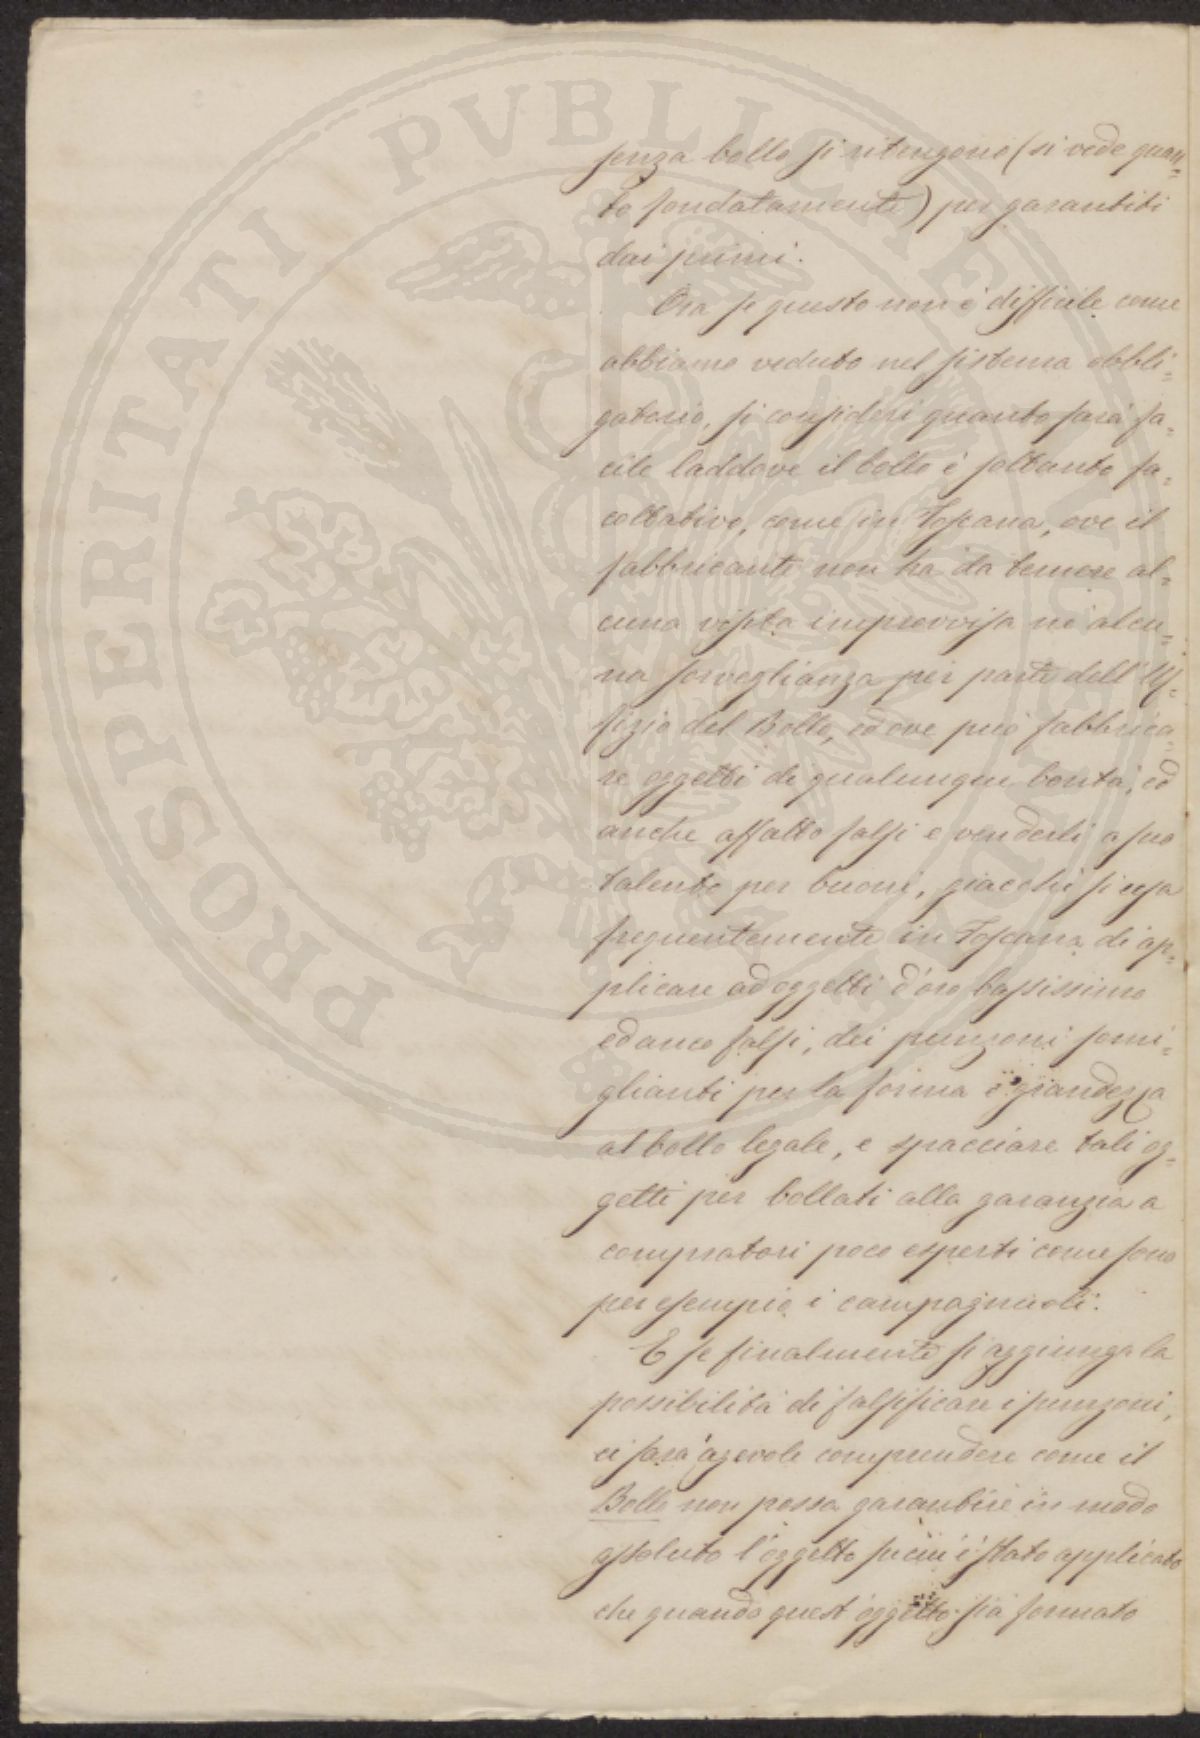 senza bollo si ritengono (si vede quan-
to fondatamente) per garantiti
dai primi.
Ora se questo non è difficile come
abbiamo veduto nel sistema obbli-
gatorio, si consideri quanto sarà fa-
cile laddove il bollo è soltanto fa-
coltativo, come in Toscana, ove il
fabbricante non ha da temere al-
cuna visita improvvisa nè alcu-
na sorveglianza per parte dell'Uf-
fizio del Bollo, ed ove può fabbrica-
re oggetti di qualunque bontà, ed
anche affatto falsi e venderli a suo
talento per buoni, giacchè si usa
frequentemente in Toscana di ap-
plicare ad oggetti d'oro bassissimo
ed anco falsi, dei punzoni somi-
glianti per la forma e grandezza
al bollo legale, e spacciare tali og-
getti per bollati alla garanzia a
compratori poco esperti come sono
per esempio i campagnuoli.
E se finalmente si aggiunga la
possibilità di falsificare i punzoni,
ci sarà agevole comprendere come il
Bollo non possa garantire in modo
assoluto l'oggetto su cui è stato applicato
che quando quest'oggetto sia formato
PROSPERITATI PVBLICAE